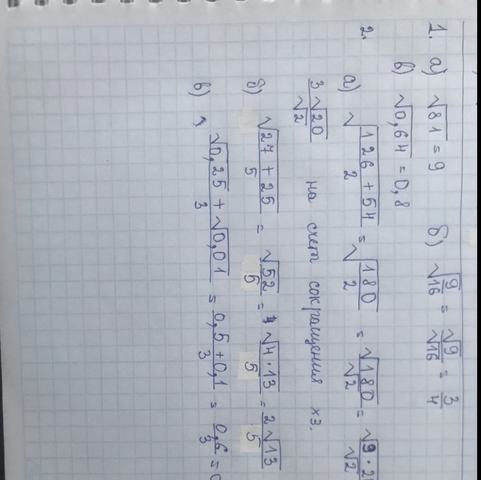 1. а) √81 = 9 б) √9/16 = √9/√16 = 3/4
в) √0,64 = 0,8
2. а) √(126 + 54)/2 = √180/2 = √180/√2 = √9·2
3√20/√2 на счет сокращения хз.
б) √(27 + 25)/5 = √52/5 = √4·13/5 = 2√13/5
в) (√0,25 + √0,01)/3 = (0,5 + 0,1)/3 = 0,6/3 =